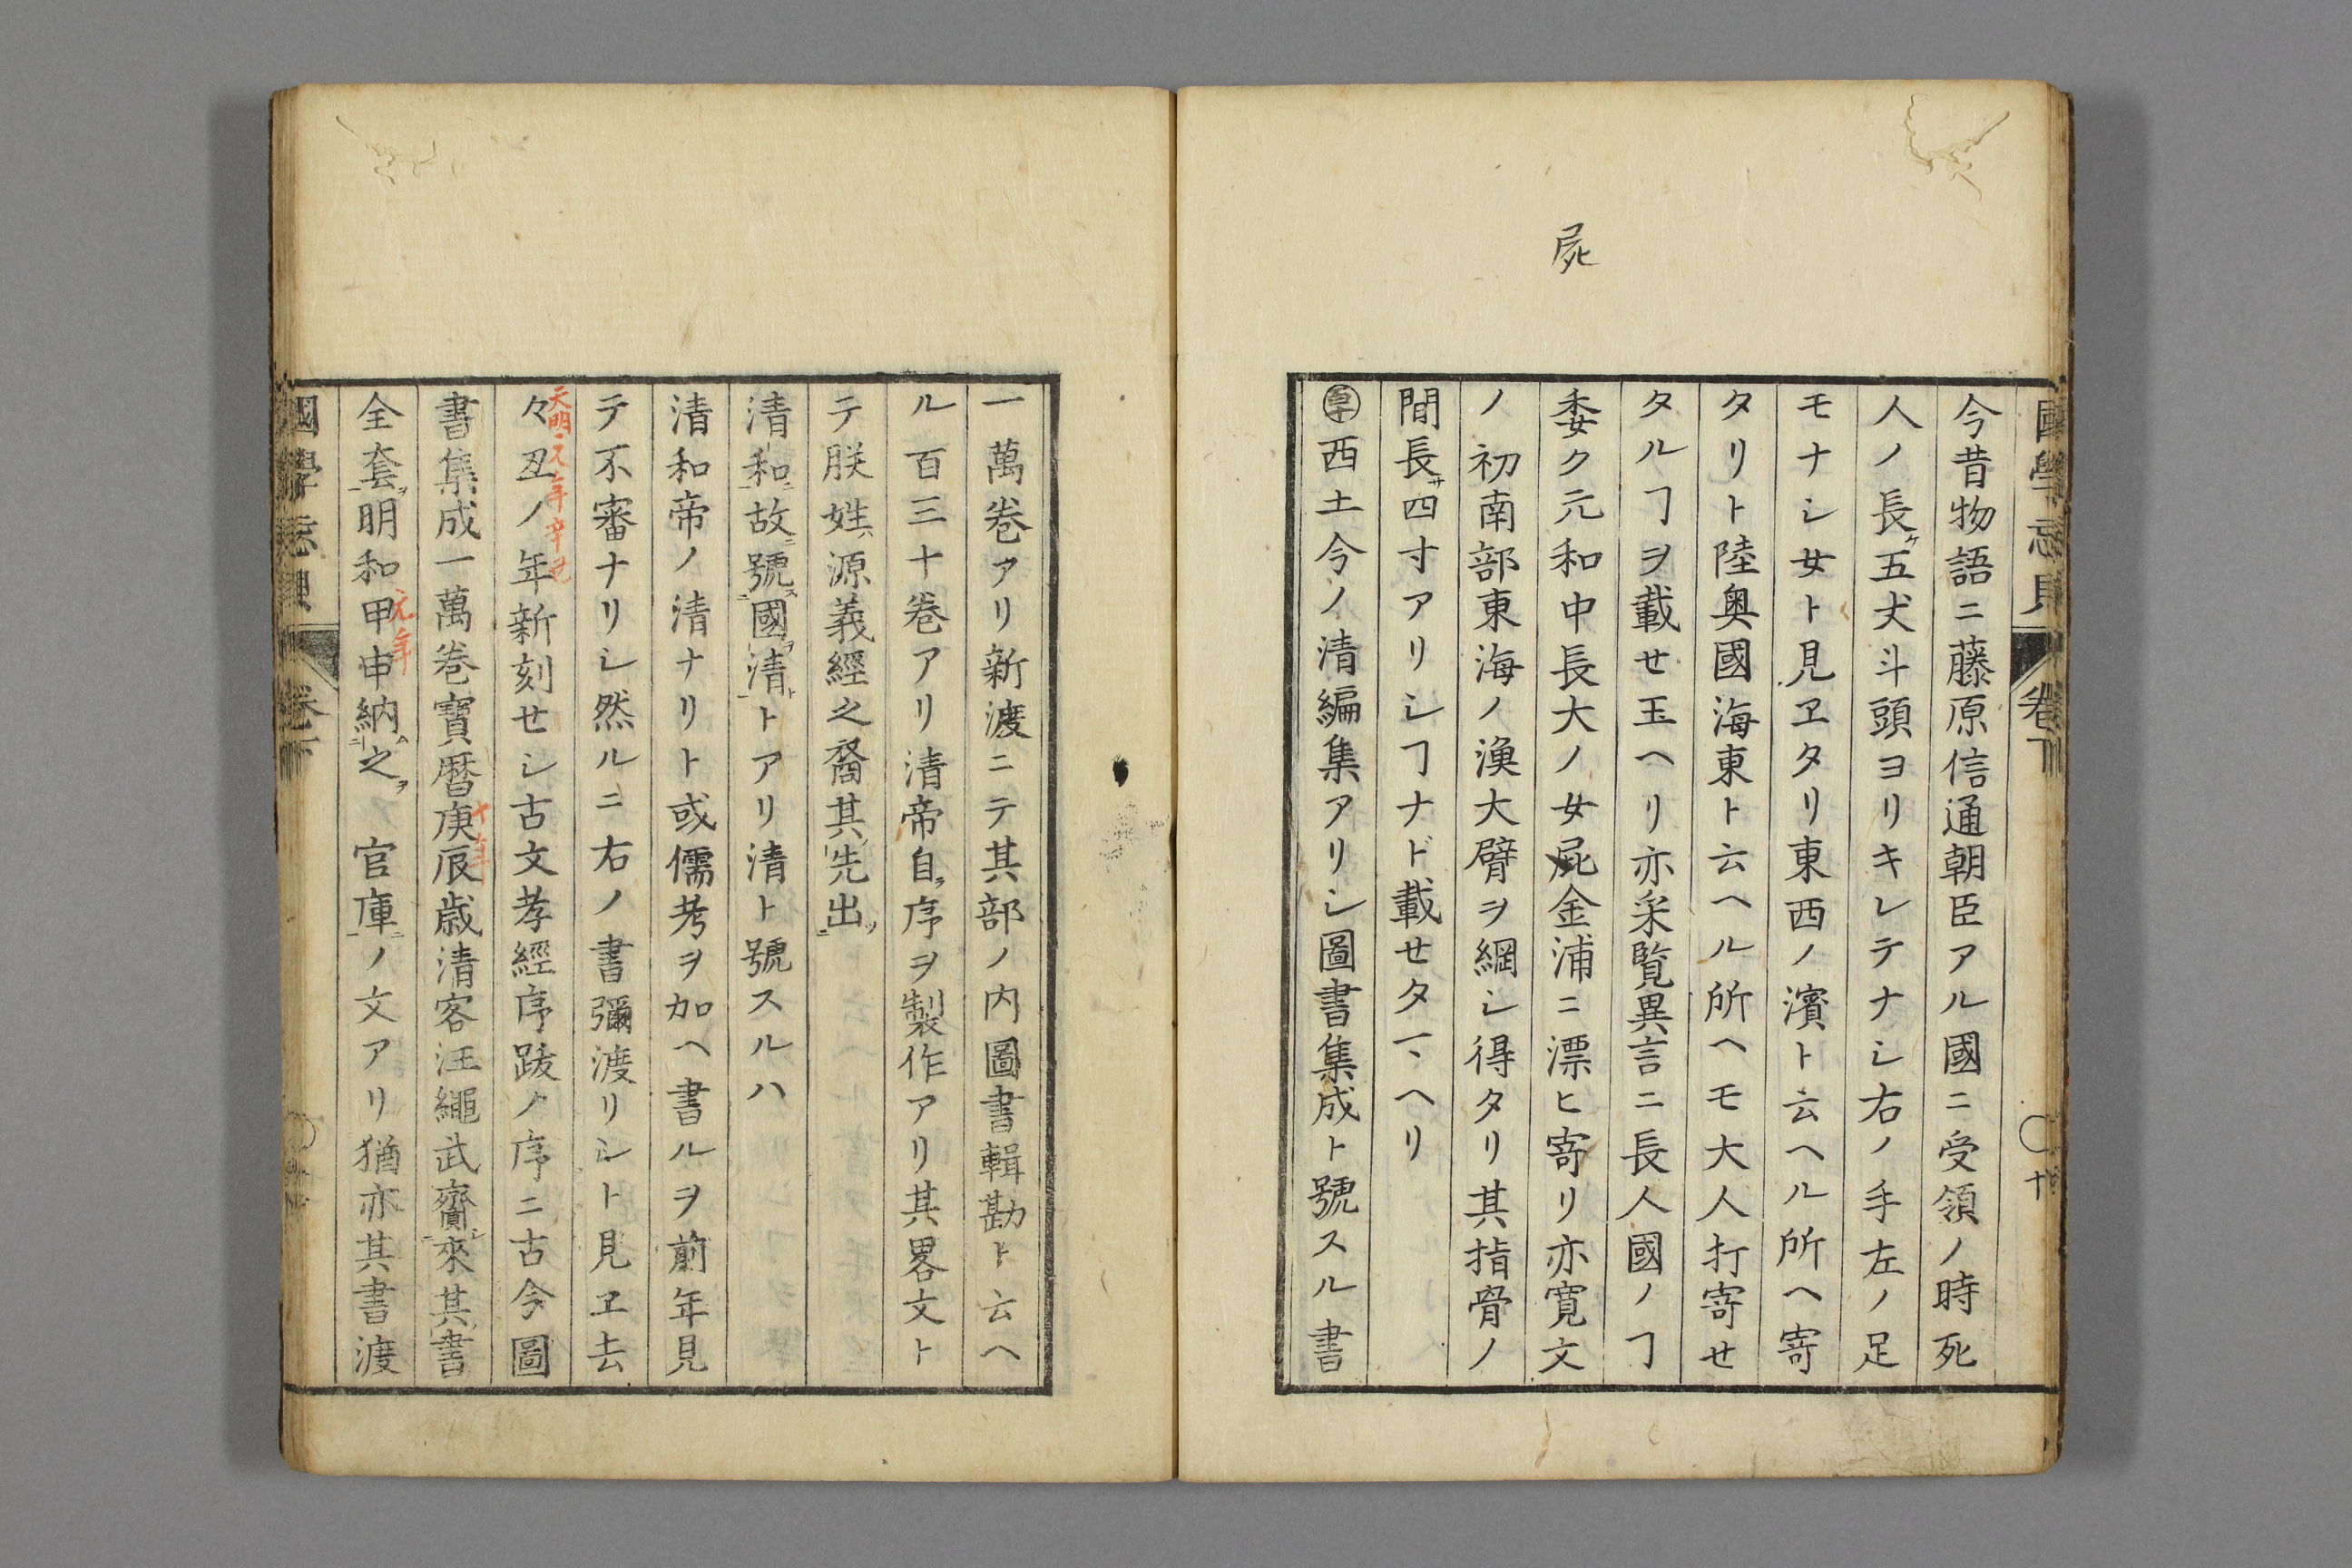 屍
國學忘貝
卷下
今昔物語ニ藤原信通朝臣アル國ニ受領ノ時死
人ノ長ケ五丈斗頭ヨリキレテナシ右ノ手左ノ足
モナシ女ト見ヱタリ東西ノ濱ト云ヘル所ヘ寄
タリト陸奥國海東ト云ヘル所ヘモ大人打寄セ
タルヿヲ載セ玉ヘリ亦采覧異言ニ長人國ノヿ
委ク元和中長大ノ女屍金浦ニ漂ヒ寄リ亦寛文
ノ初南部東海ノ漁大臂ヲ綱シ得タリ其指骨ノ
間長サ四寸アリシヿナド載セタマヘリ
西土今ノ清編集アリシ圖書集成ト號スル書
一萬卷アリ新渡ニテ其部ノ内圖書輯勘ト云ヘ
ル百三十卷アリ清帝自ヲ序ヲ製作アリ其畧文ト
テ朕姓ハ源義經之裔其先出ツ
清和ニ故ニ號ス國ヲ清トトアリ清ト號スルハ
清和帝ノ清ナリト或儒考ヲ加ヘ書ルヲ前年見
テ不審ナリシ然ルニ右ノ書彌渡リシト見ヱ去
天明元年辛丑
々丑ノ年新刻セシ古文孝經序跋ノ序ニ古今圖
書集成一萬卷寶暦庚辰歳清客汪繩武齎來其書
十年
全套ヲ明和甲申納ム之ヲ 官庫ニノ文アリ猶亦其書渡
元年
國學忘貝
卷下